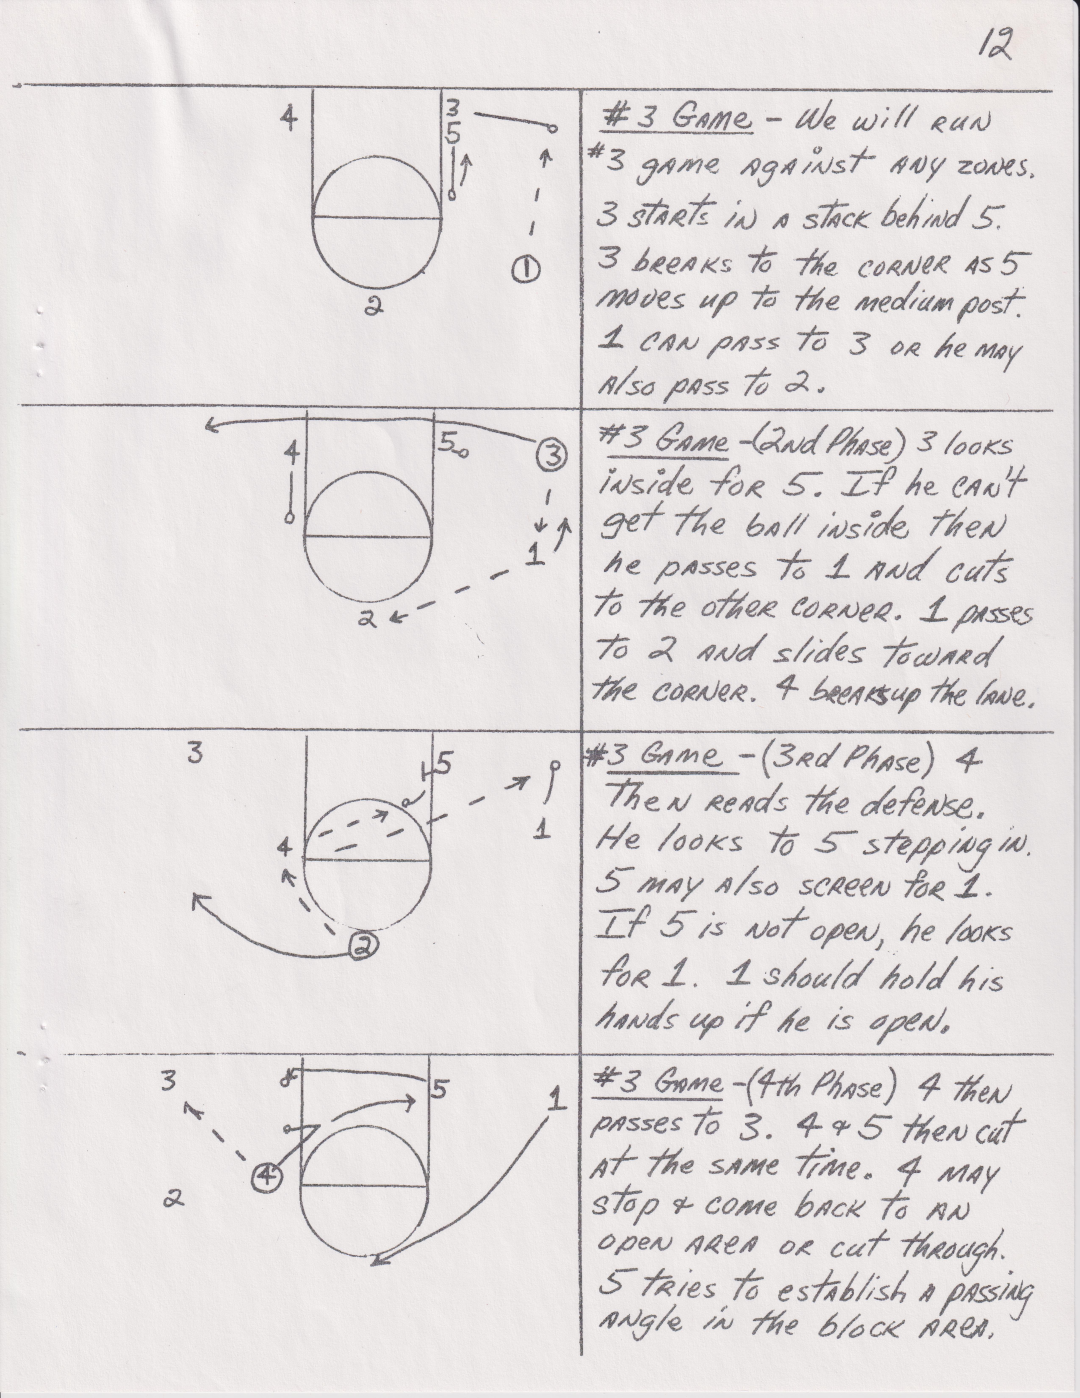 12
4
3
5
1
2
#3 Game - We will run
#3 game against any zones.
3 starts in a stack behind 5.
3 breaks to the corner as 5
moves up to the medium post.
1 can pass to 3 or he may
also pass to 2.
4
5
3
1
2
#3 Game -(2nd Phase) 3 looks
inside for 5. If he can't
get the ball inside then
he passes to 1 and cuts
to the other corner. 1 passes
to 2 and slides toward
the corner. 4 breaks up the lane.
3
5
1
4
2
#3 Game -(3rd Phase) 4
Then reads the defense.
He looks to 5 stepping in.
5 may also screen for 1.
If 5 is not open, he looks
for 1. 1 should hold his
hands up if he is open.
3
5
1
4
2
#3 Game -(4th Phase) 4 then
passes to 3. 4 & 5 then cut
at the same time. 4 may
stop & come back to an
open area or cut through.
5 tries to establish a passing
angle in the block area.